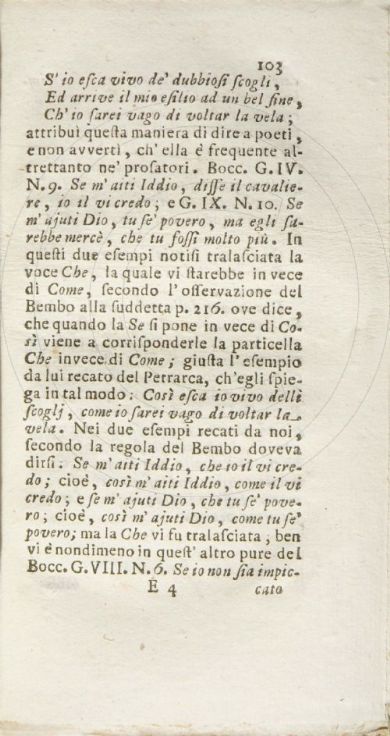 103
S' io eſca vivo de' dubbioſi ſcogli,
Ed arrive il mio eſilio ad un bel fine,
Ch' io ſarei vago di voltar la vela;
attribuì queſta maniera di dire a poeti,
e non avvertì, ch' ella è frequente al-
trettanto ne' proſatori. Bocc. G. IV.
N. 9. Se m' aiti Iddio, diſſe il cavalie-
re, io il vi credo; e G. IX. N. 10. Se
m' ajuti Dio, tu ſe' povero, ma egli ſa-
rebbe mercè, che tu foſſi molto più. In
queſti due eſempi notiſi tralaſciata la
voce Che, la quale vi ſtarebbe in vece
di Come, ſecondo l' oſſervazione del
Bembo alla ſuddetta p. 216. ove dice,
che quando la Se ſi pone in vece di Co-
sì viene a corriſponderle la particella
Che in vece di Come; giuſta l' eſempio
da lui recato del Petrarca, ch' egli ſpie-
ga in tal modo: Così eſca io vivo delli
ſcoglj, come io ſarei vago di voltar la
vela. Nei due eſempj recati da noi,
ſecondo la regola del Bembo doveva
dirſi: Se m' aiti Iddio, che io il vi cre-
do; cioè, così m' aiti Iddio, come il vi
credo; e ſe m' ajuti Dio, che tu ſe' pove-
ro; cioè, così m' ajuti Dio, come tu ſe'
povero; ma la Che vi fu tralaſciata; ben
vi è nondimeno in queſt' altro pure del
Bocc. G. VIII. N. 6. Se io non ſia impic-
E 4 cato